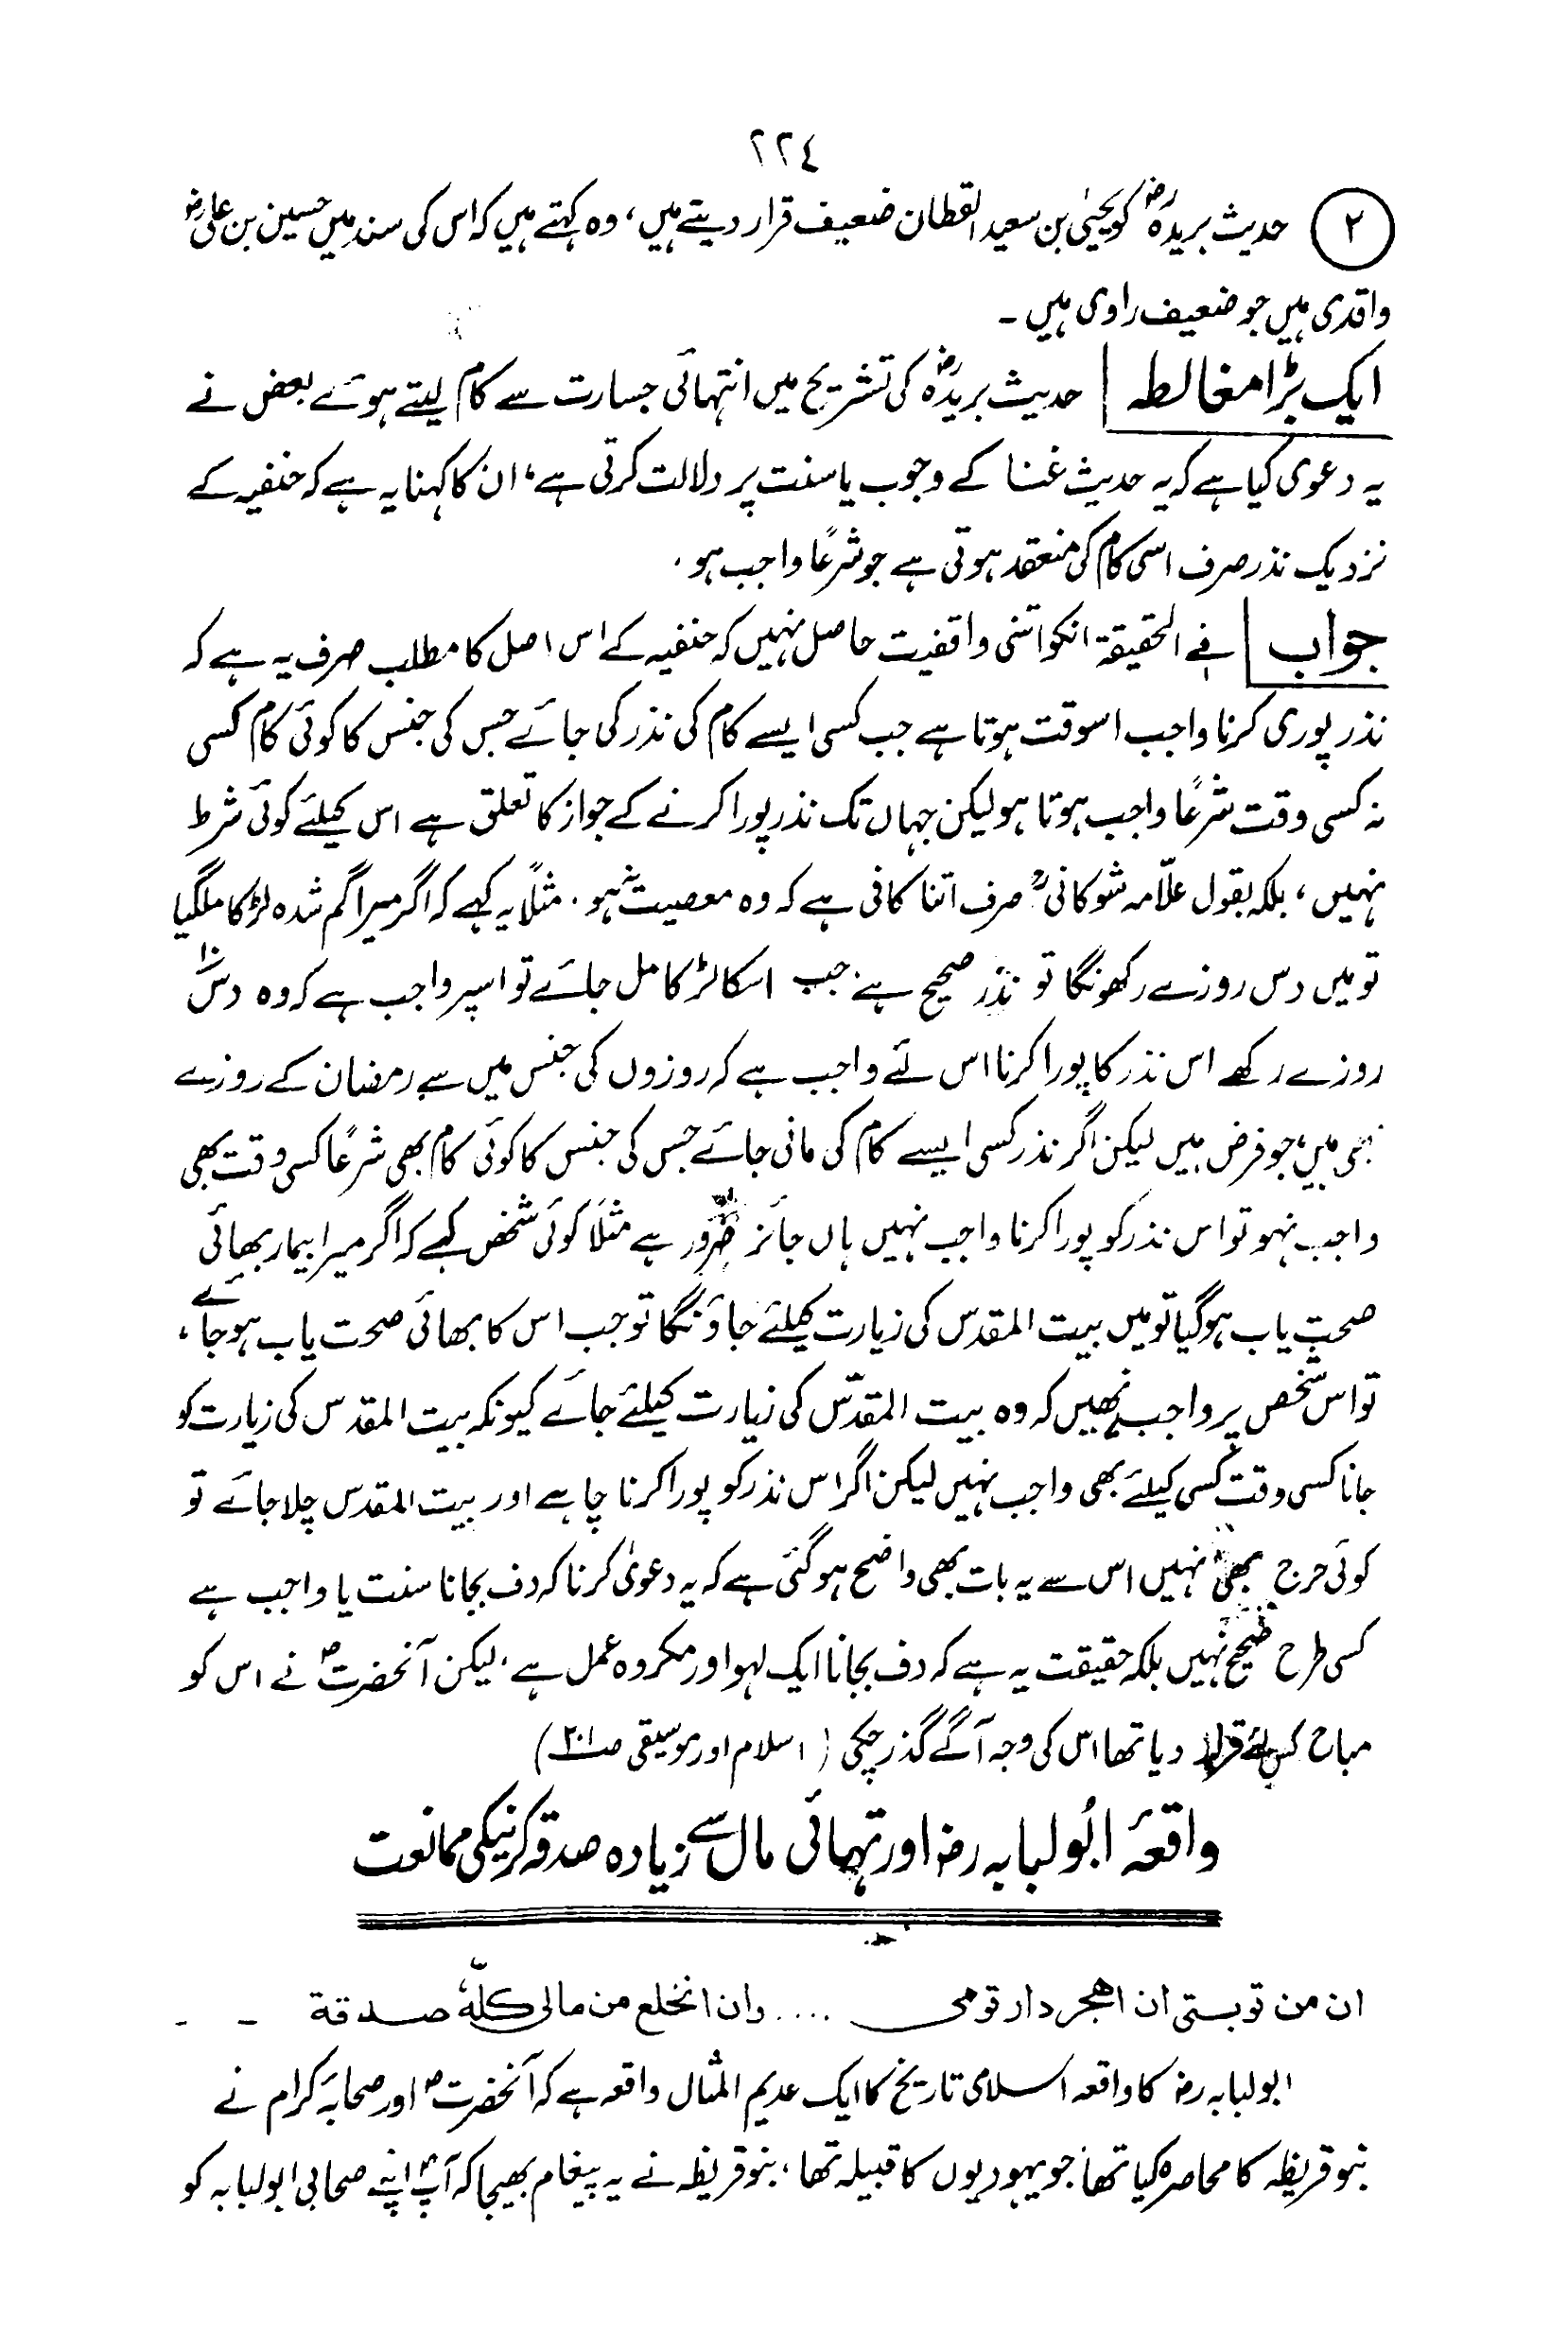 ٢٢٤
٢ حدیث بریدہؓ کو یحیٰی بن سعید القطان ضعیف قرار دیتے ہیں، وہ کہتے ہیں کہ اس کی سند میں حسین بن علیؓ
واقدی ہیں جو ضعیف راوی ہیں۔
ایک بڑا مغالطہ حدیث بریدہؓ کی تشریح میں انتہائی جسارت سے کام لیتے ہوئے بعض نے
یہ دعوی کیا ہے کہ یہ حدیث غنا کے وجوب یا سنت پر دلالت کرتی ہے، ان کا کہنا یہ ہے کہ حنفیہ کے
نزدیک نذر صرف اسی کام کی منعقد ہوتی ہے جو شرعًا واجب ہو۔
جواب فے الحقیقۃ انکو اتنی واقفیت حاصل نہیں کہ حنفیہ کے اس اصل کا مطلب صرف یہ ہے کہ
نذر پوری کرنا واجب اسوقت ہوتا ہے جب کسی ایسے کام کی نذر کی جائے جس کی جنس کا کوئی کام کسی
نہ کسی وقت شرعًا واجب ہوتا ہو لیکن جہاں تک نذر پورا کرنے کے جواز کا تعلق ہے اس کیلئے کوئی شرط
نہیں، بلکہ بقول علّامہ شوکانیؒ صرف اتنا کافی ہے کہ وہ معصیت نہ ہو۔ مثلًا یہ کہے کہ اگر میرا گم شدہ لڑکا ملگیا
تو میں دس روزے رکھونگا تو نذر صحیح ہے جب اسکا لڑکا مل جائے تو اسپر واجب ہے کہ وہ دس ۱۰
روزے رکھے اس نذر کا پورا کرنا اس لئے واجب ہے کہ روزوں کی جنس میں سے رمضان کے روزے
بھی ہیں، جو فرض ہیں لیکن اگر نذر کسی ایسے کام کی مانی جائے جس کی جنس کا کوئی کام بھی شرعًا کسی وقت بھی
واجب نہو تو اس نذر کو پورا کرنا واجب نہیں ہاں جائز ضرور ہے مثلًا کوئی شخص کہے کہ اگر میرا بیمار بھائی
صحت یاب ہوگیا تو میں بیت المقدس کی زیارت کیلئے جاؤنگا تو جب اس کا بھائی صحت یاب ہوجائے،
تو اس شخص پر واجب نہیں کہ وہ بیت المقدّس کی زیارت کیلئے جائے کیونکہ بیت المقدس کی زیارت کو
جانا کسی وقت کسی کیلئے بھی واجب نہیں لیکن اگر اس نذر کو پورا کرنا چاہے اور بیت المقدس چلا جائے تو
کوئی حرج بھی نہیں اس سے یہ بات بھی واضح ہوگئی ہے کہ یہ دعوٰی کرنا کہ دف بجانا سنت یا واجب ہے
کسی طرح صحیح نہیں بلکہ حقیقت یہ ہے کہ دف بجانا ایک لہو اور مکروہ عمل ہے، لیکن آنحضرتؐ نے اس کو
مباح کس لئے قرار دیا تھا اس کی وجہ آگے گذر چکی (اسلام اور موسیقی صـ۲۰۱)
واقعۂ ابُولبابہ رضہ اور تہائی مال سے زیادہ صدقہ کرنیکی ممانعت
ان من توبستی ان اهجر دار قومی .... وان انخلع من مالی کلّهٗ صدقة - -
ابولبابہ رضہ کا واقعہ اسلامی تاریخ کا ایک عدیم المثال واقعہ ہے کہ آنحضرتؐ اور صحابۂ کرام نے
بنو قریظہ کا محاصرہ کیا تھا جو یہودیوں کا قبیلہ تھا، بنو قریظہ نے یہ پیغام بھیجا کہ آپؐ اپنے صحابی ابولبابہ کو